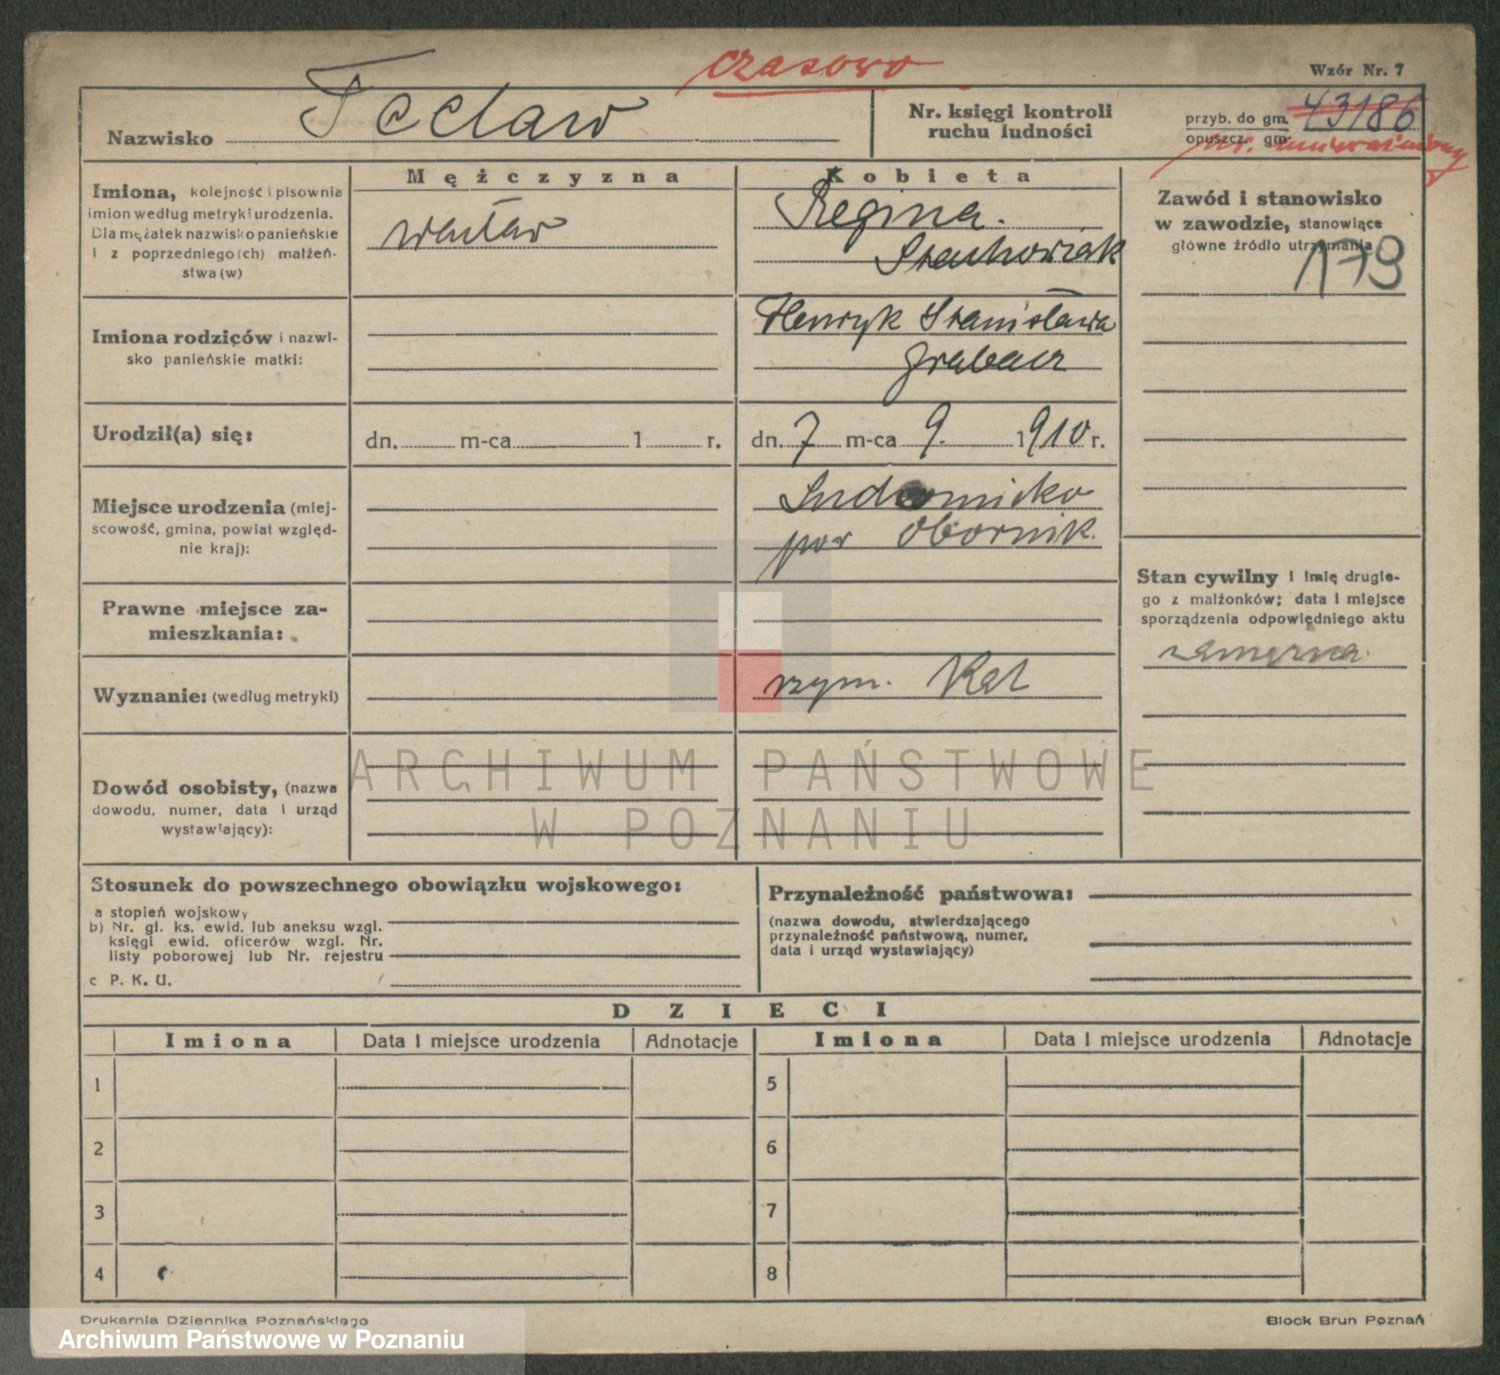 czasowo
Wzór Nr. 7
Nazwisko Feclaw
Nr. księgi kontroli
ruchu ludności
przyb. do gm. 43186
opuszcz. gm.
nr. unieważniony
Mężczyzna
Kobieta
Imiona, kolejność i pisownia
imion według metryki urodzenia.
Dla mężatek nazwisko panieńskie
i z poprzedniego(ch) małżeń-
stwa(w)
Wacław
Regina.
Stachowiak
Zawód i stanowisko
w zawodzie, stanowiące
główne źródło utrzymania
179
Imiona rodziców i nazwi-
sko panieńskie matki:
Henryk Stanisława
Grabacz
Urodził(a) się:
dn. m-ca 1 r.
dn. 7 m-ca 9. 1910 r.
Miejsce urodzenia (miej-
scowość, gmina, powiat względ-
nie kraj):
pow Obornik.
Prawne miejsce za-
mieszkania:
Stan cywilny i imię drugie-
go z małżonków; data i miejsce
sporządzenia odpowiędniego aktu
zamężna.
Wyznanie: (według metryki)
rzym. Kat
Dowód osobisty, (nazwa
dowodu, numer, data i urząd
wystawiający):
ARCHIWUM PAŃSTWOWE
W POZNANIU
Stosunek do powszechnego obowiązku wojskowego:
a stopień wojskowy
b) Nr. gł. ks. ewid. lub aneksu wzgl.
księgi ewid. oficerów wzgl. Nr.
listy poborowej lub Nr. rejestru
c P. K. U.
Przynależność państwowa:
(nazwa dowodu, stwierdzającego
przynależność państwową, numer,
data i urząd wystawiający)
DZIECI
Imiona Data i miejsce urodzenia Adnotacje Imiona Data i miejsce urodzenia Adnotacje
1 5
2 6
3 7
4 8
Drukarnia Dziennika Poznańskiego
Block Brun Poznań
Archiwum Państwowe w Poznaniu